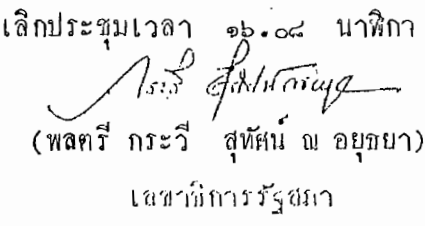 เลิกประชุมเวลา ๑๖.๐๘ นาฬิกา
(พลตรี กระวี สุทัศน์ ณ อยุธยา)
เลขาธิการรัฐสภา